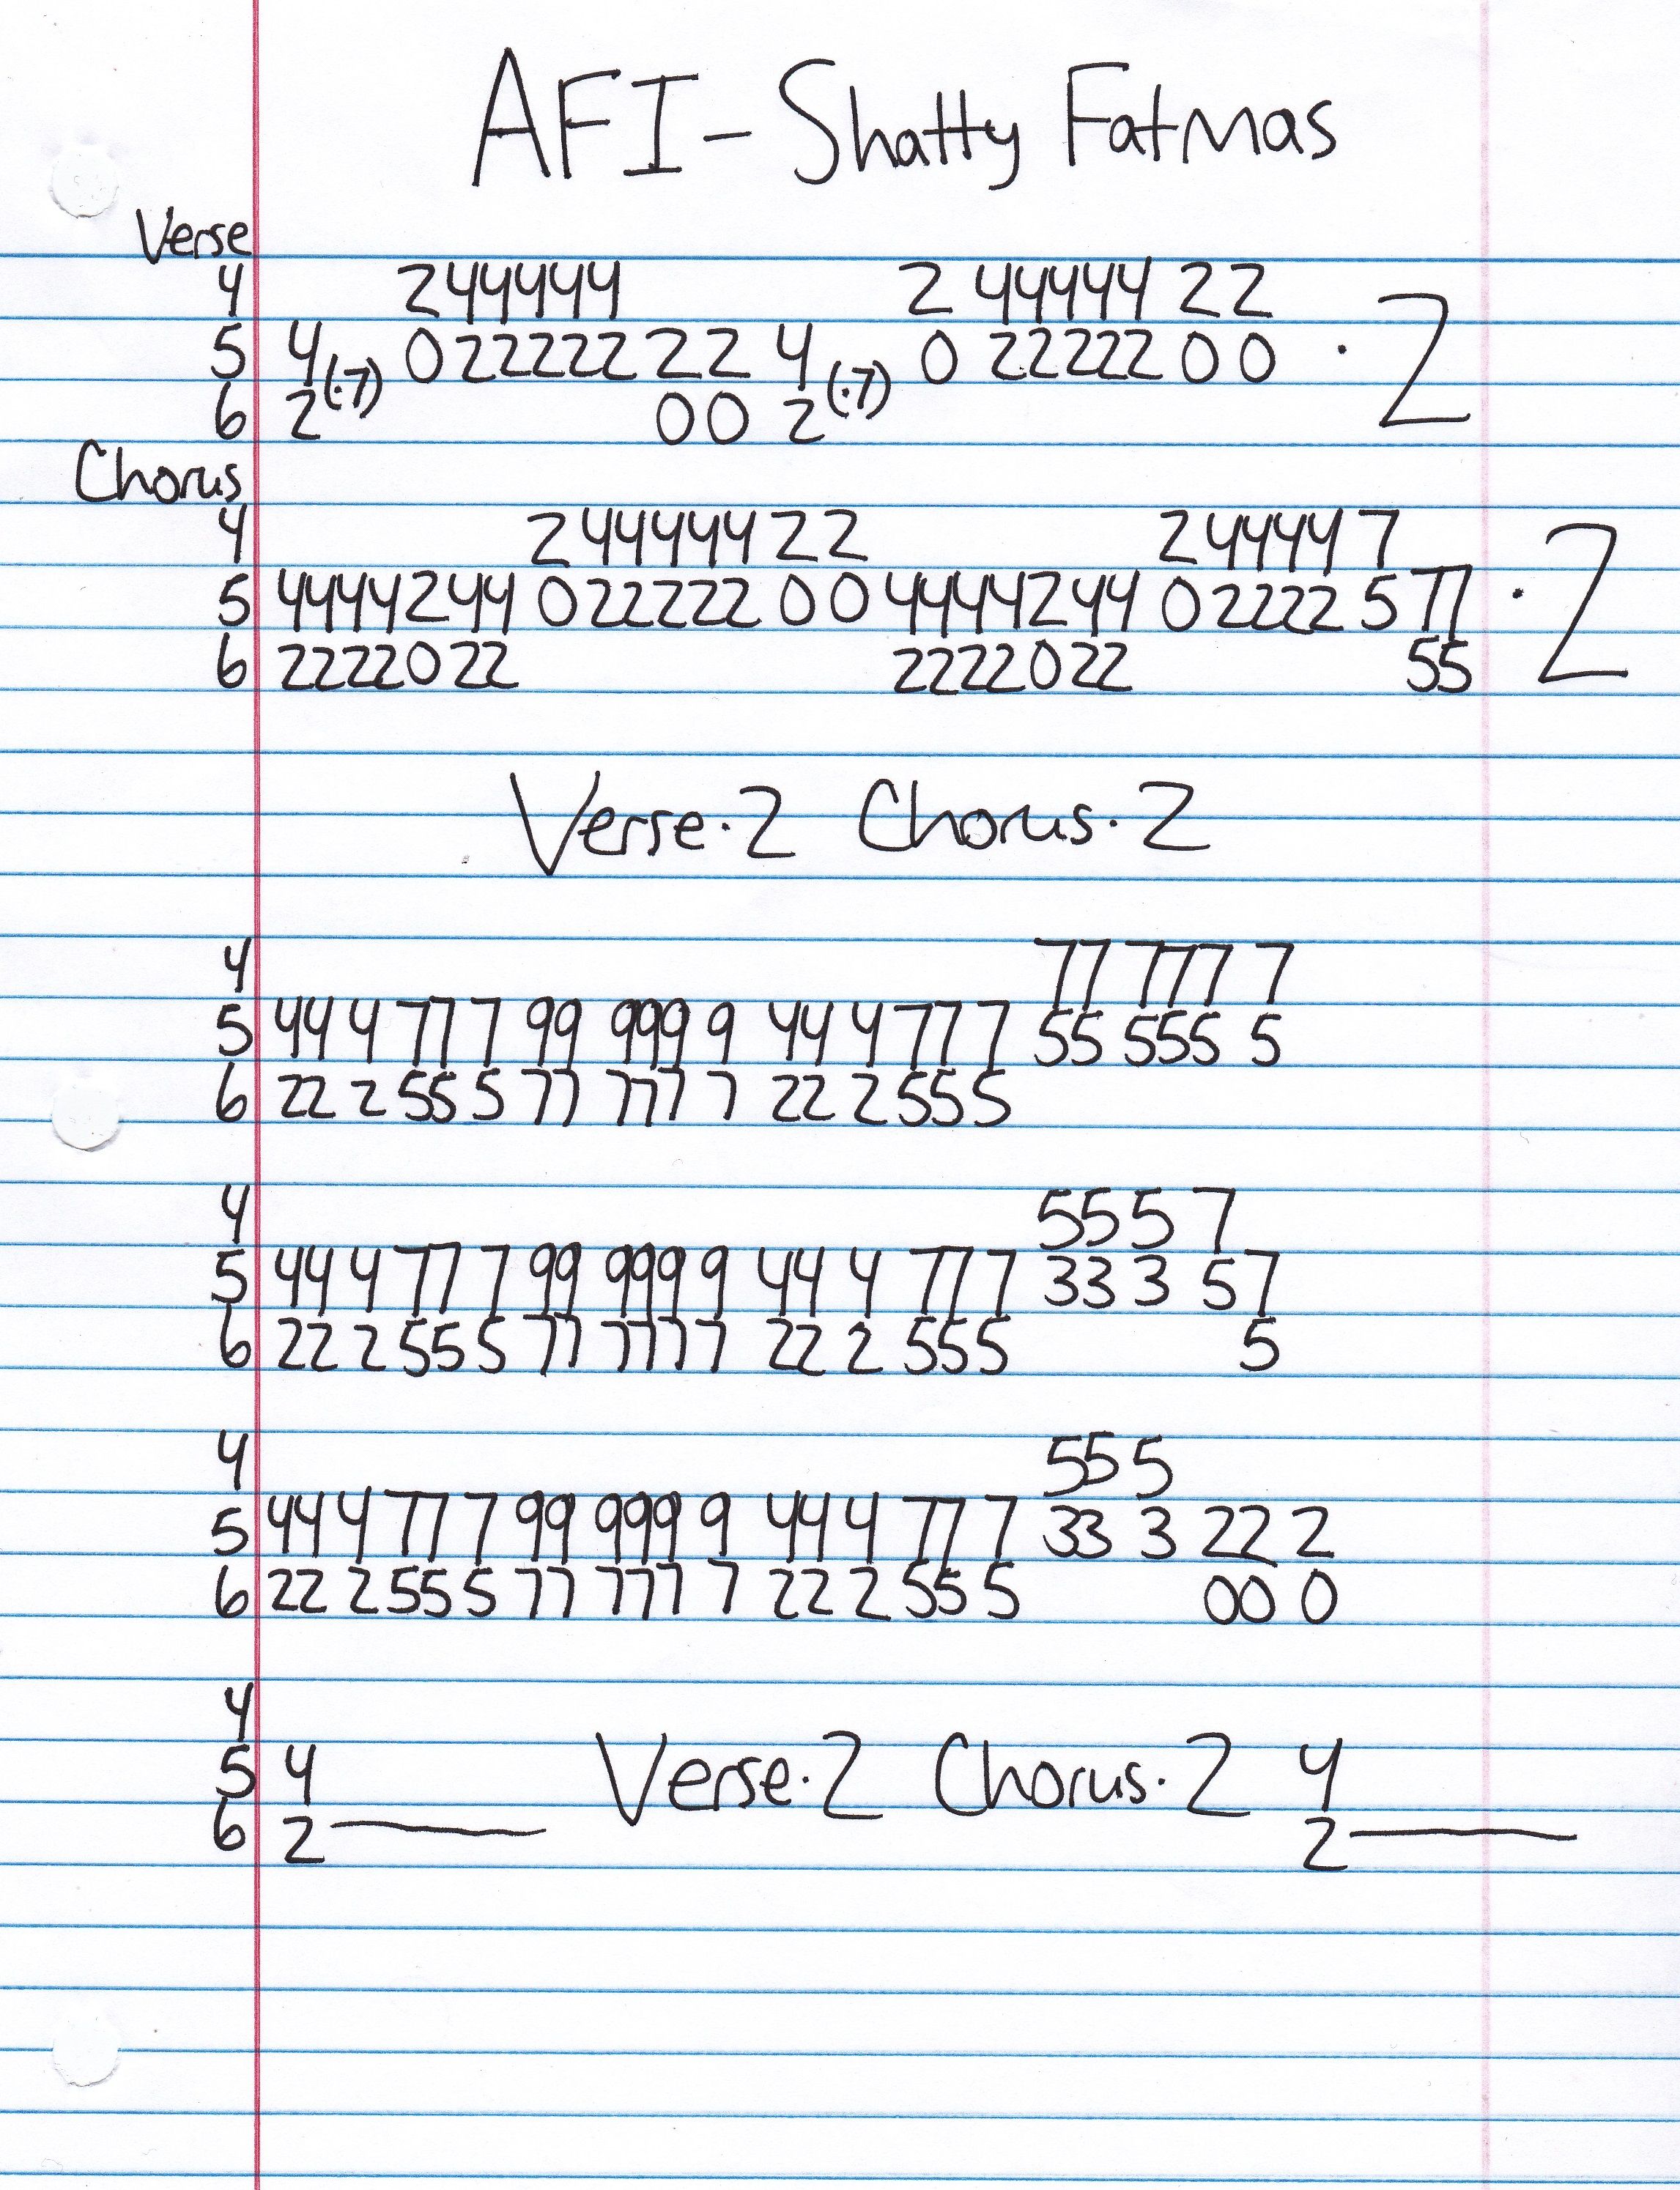 AFI - Shatty Fatmas
Verse
4 2 4 4 4 4 4 2 4 4 4 4 4 2 2
5 4 (·7) 0 2 2 2 2 2 2 2 4 (·7) 0 2 2 2 2 2 0 0 · 2
6 2 0 0 2
Chorus
4 2 4 4 4 4 4 2 2 2 4 4 4 4 7
5 4 4 4 4 2 4 4 0 2 2 2 2 2 0 0 4 4 4 4 2 4 4 0 2 2 2 2 5 7 7 · 2
6 2 2 2 2 0 2 2 2 2 2 2 0 2 2 5 5
Verse · 2 Chorus · 2
4 77 777 7
5 44 4 77 7 99 999 9 44 4 77 7 55 555 5
6 22 2 55 5 77 777 7 22 2 55 5
4 55 5 7
5 44 4 77 7 99 999 9 44 4 77 7 33 3 5 7
6 22 2 55 5 77 777 7 22 2 55 5 5
4 55 5
5 44 4 77 7 99 999 9 44 4 77 7 33 3 22 2
6 22 2 55 5 77 777 7 22 2 55 5 00 0
4
5 4 Verse · 2 Chorus · 2 4
6 2 2